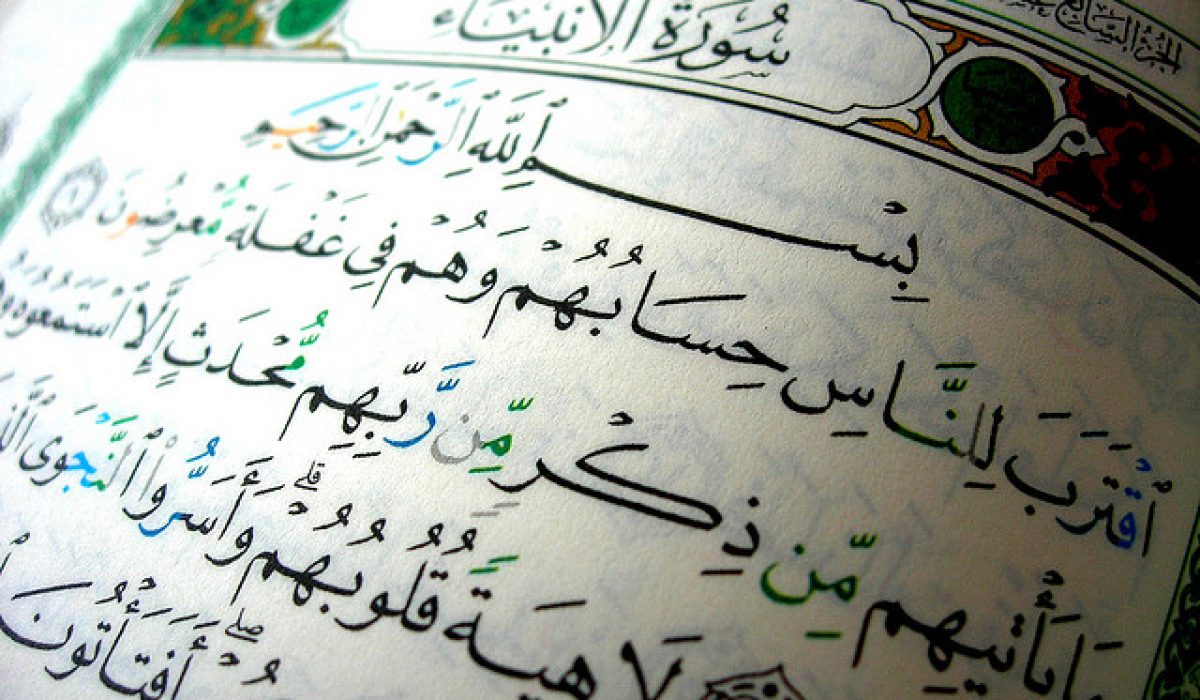 الجزء السابع عشر
سُورَةُ الأنبيَاء
بِسْمِ ٱللَّهِ ٱلرَّحْمَٰنِ ٱلرَّحِيمِ
ٱقْتَرَبَ لِلنَّاسِ حِسَابُهُمْ وَهُمْ فِي غَفْلَةٍ مُّعْرِضُونَ ١
يَأْتِيهِم مِّن ذِكْرٍ مِّن رَّبِّهِم مُّحْدَثٍ إِلَّا ٱسْتَمَعُوهُ
لَاهِيَةً قُلُوبُهُمْ ۗ وَأَسَرُّوا۟ ٱلنَّجْوَى
أَفَتَأْتُونَ